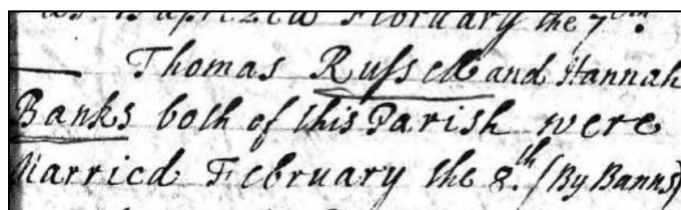 was Baptized February the 7th.
Thomas Russell and Hannah
Banks both of this Parish were
Married February the 8.th (By Banns)